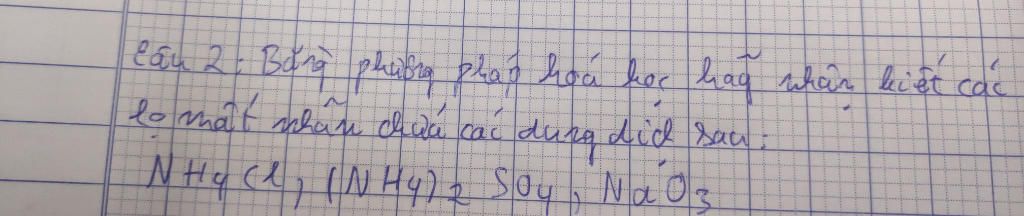 Câu 2: Bằng phương pháp hoá học hãy nhận biết các
lọ mất nhãn chứa các dung dịch sau:
NH4Cl, (NH4)2 SO4, NaO3